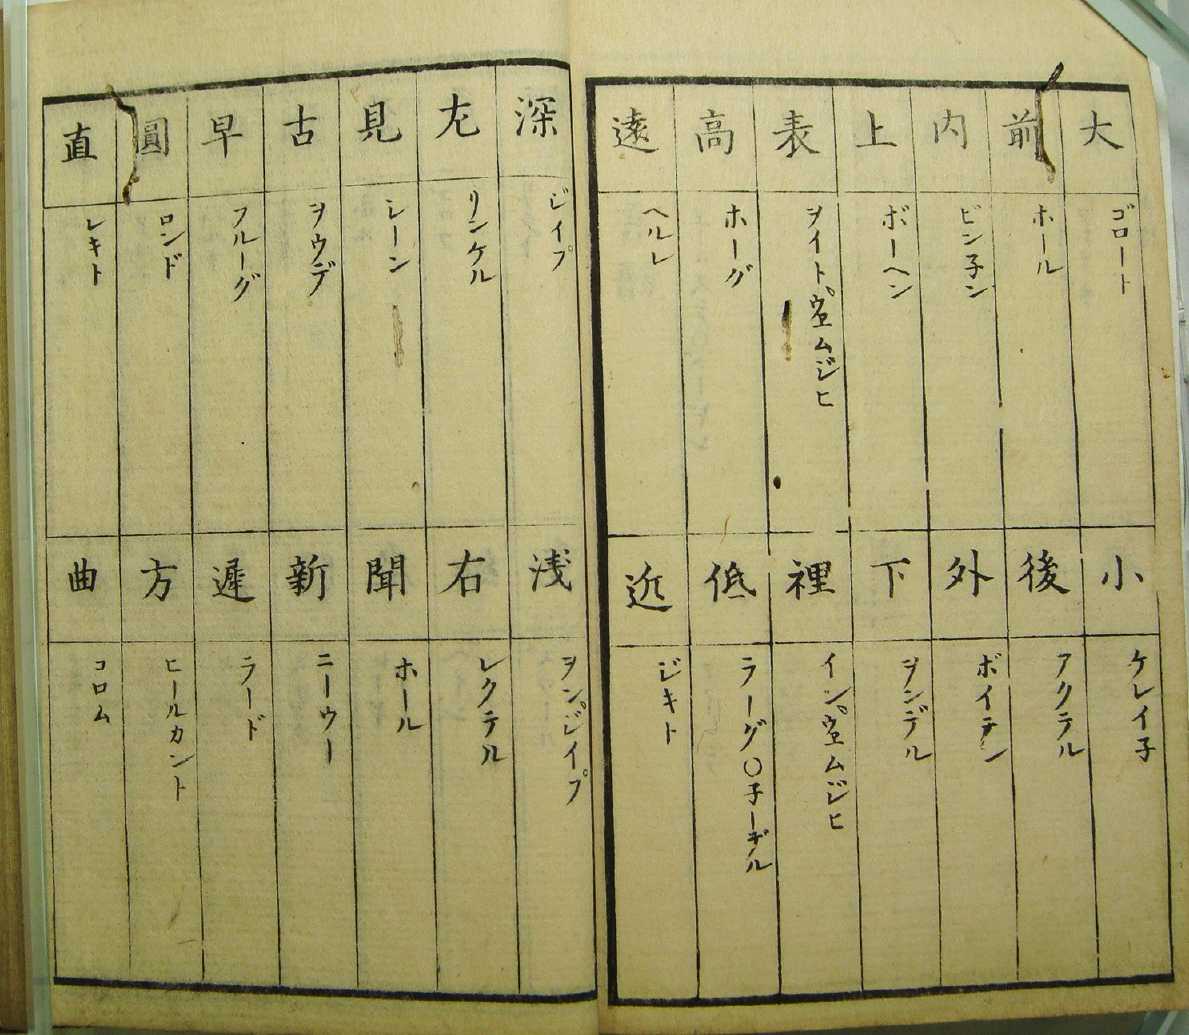 大 ゴロート
小 ケレイ子
前 ホール
後 アクテル
内 ビン子ン
外 ボイテン
上 ボーヘン
下 ヲンデル
表 ヲイト
裡 イン
高 ホーグ
低 ラーグ〇子ーデル
遠 ヘルレ
近 ジキト
深 ジイプ
浅 ヲンジイプ
左 リンケル
右 レクテル
見 シーン
聞 ホール
古 ヲウデ
新 ニーウー
早 フルーグ
遲 ラード
圓 ロンド
方 ヒールカント
直 レキト
曲 コロム